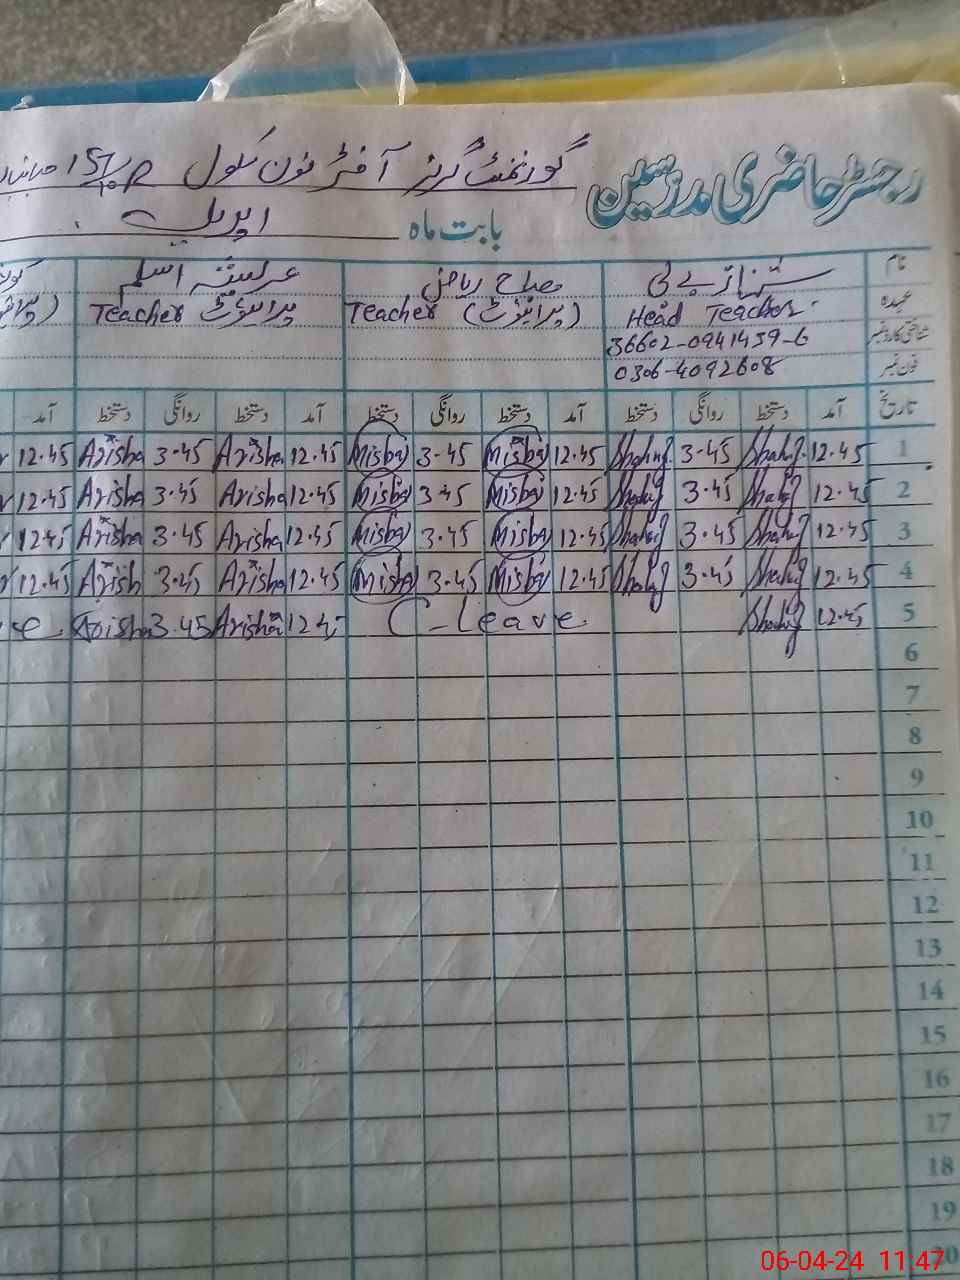 رجسٹر حاضری مدرسین گورنمنٹ گرلز آفٹر نون سکول 157/P
بابت ماہ اپریل
نام شہناز بی بی مصباح ریاض عریشہ اسلم
عہدہ Head Teacher Teacher (پرائیوٹ) Teacher پرائیوٹ
شناختی کارڈ نمبر 36602-0941439-6
فون نمبر 0306-4092608
تاریخ آمد دستخط روانگی دستخط آمد دستخط روانگی دستخط آمد دستخط روانگی دستخط آمد
1 12.45 Shahnaz 3.45 Shahnaz 12.45 Misba 3.45 Misba 12.45 Arisha 3.45 Arisha 12.45
2 12.45 Shahnaz 3.45 Shahnaz 12.45 Misba 3.45 Misba 12.45 Arisha 3.45 Arisha 12.45
3 12.45 Shahnaz 3.45 Shahnaz 12.45 Misba 3.45 Misba 12.45 Arisha 3.45 Arisha 12.45
4 12.45 Shahnaz 3.45 Shahnaz 12.45 Misba 3.45 Misba 12.45 Arisha 3.45 Arish 12.45
5 12.45 Shahnaz C-Leave 12.45 Arisha 3.45 Arisha
6
7
8
9
10
11
12
13
14
15
16
17
18
19
20
06-04-24 11:47